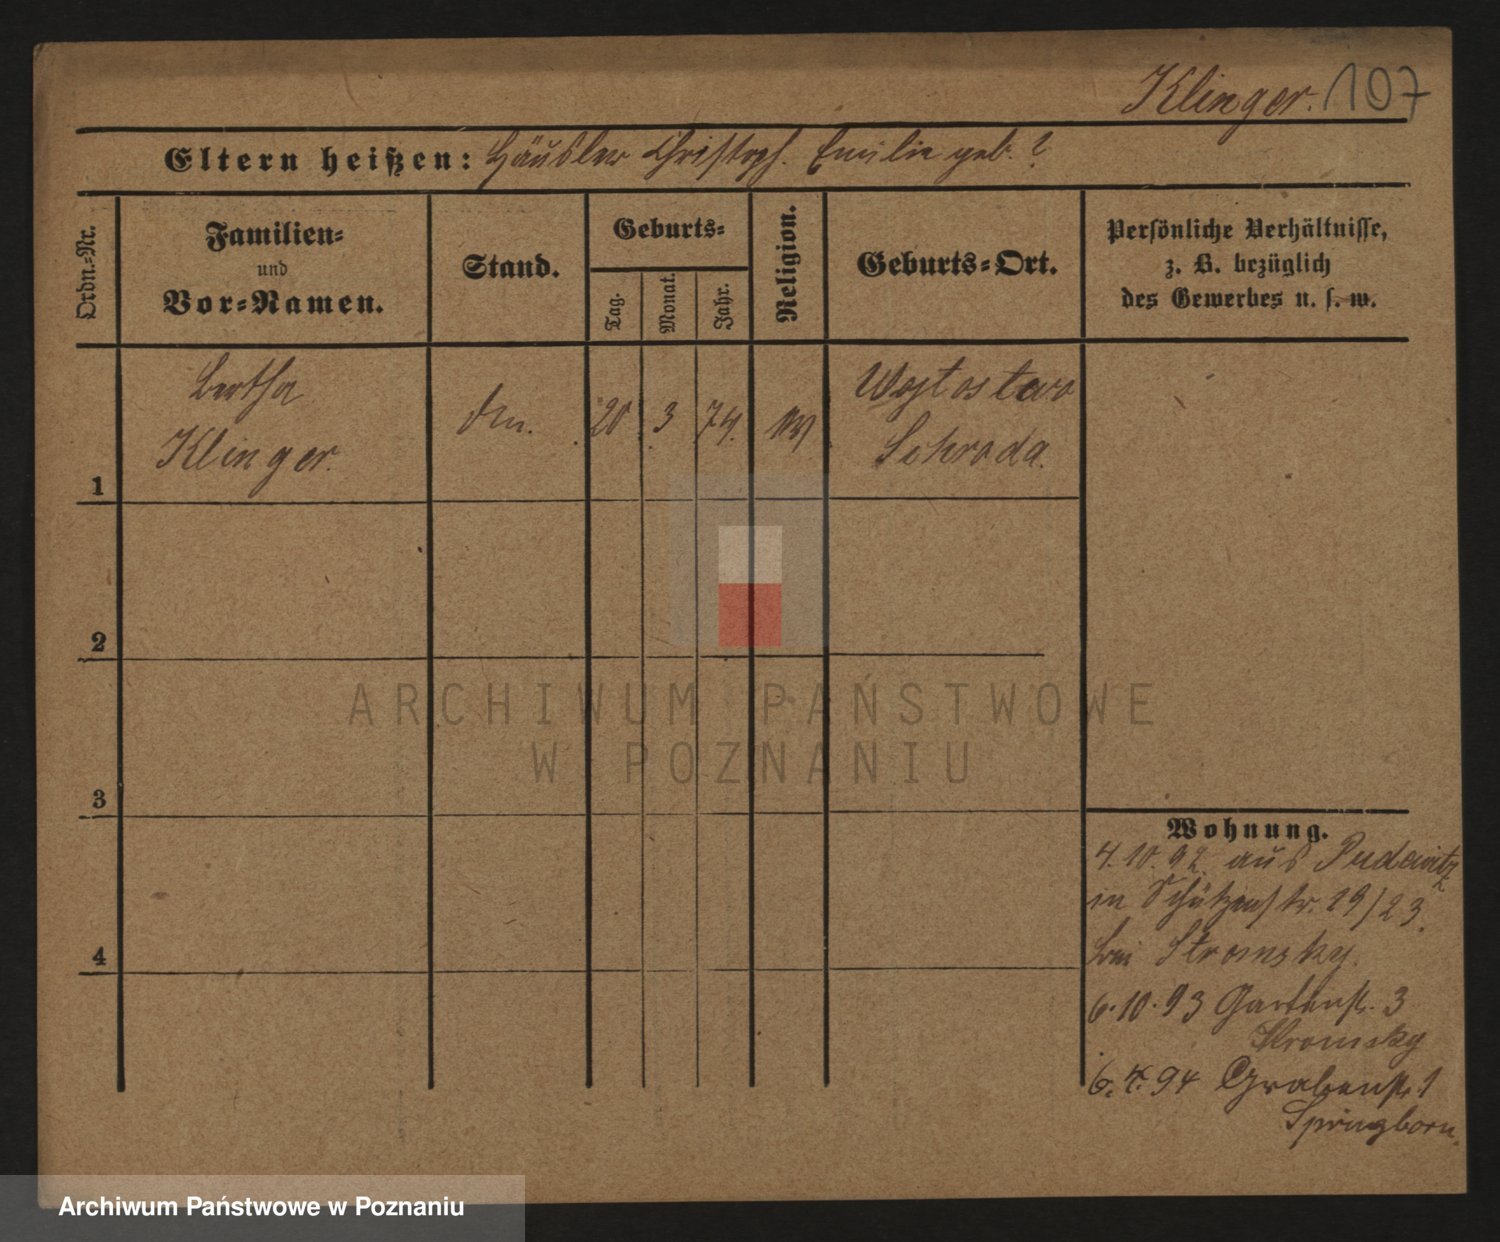 Klinger. 107
Eltern heißen: Häusler Christoph. Emilie geb. ?
Ordn.-Nr.
Familien-
und
Vor-Namen.
Stand.
Geburts-
Tag.
Monat.
Jahr.
Religion.
Geburts-Ort.
Persönliche Verhältnisse,
z. B. bezüglich
des Gewerbes u. s. w.
1
Bertha
Klinger.
20. 3 74.
Schroda.
2
3
4
Wohnung.
4. 10. 92. aus Pudewitz
in Schützenstr. 19/23.
bei Stromsky.
6. 10. 93 Gartenstr. 3
Stromsky
6. 4. 94 Grabenstr. 1
Springborn.
ARCHIWUM PAŃSTWOWE
W POZNANIU
Archiwum Państwowe w Poznaniu